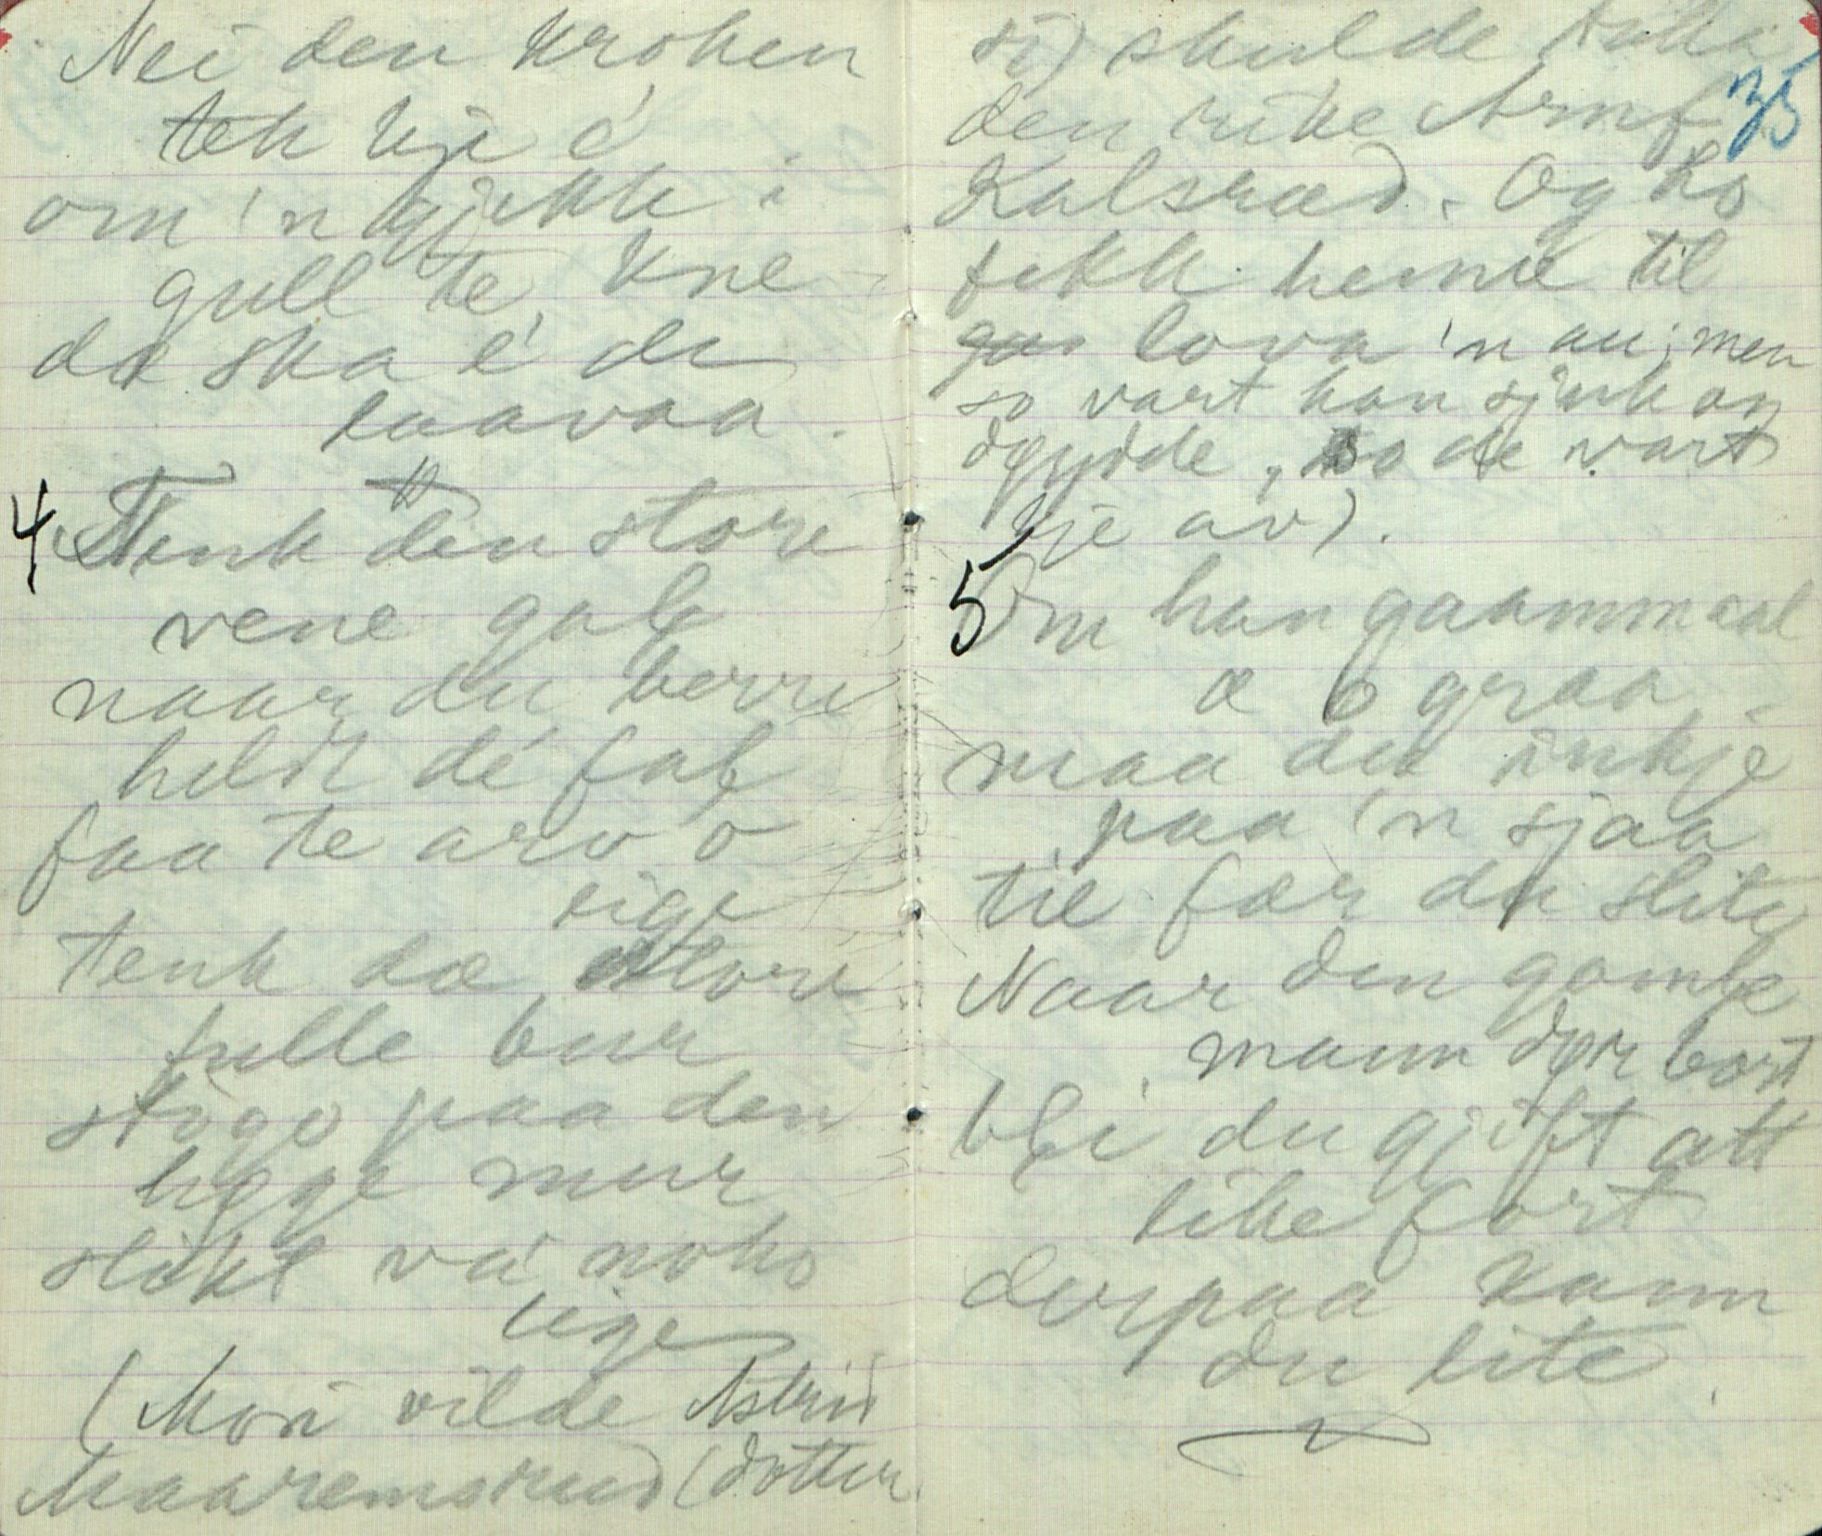 Nei den kroken
tek kje e'
om 'n gjekk i
gull te kne
dæ ska e' de
laavaa.
4. Tenk den store
vene gal
naar du berre
heldt de' fal
faa te arv o
eige
tenk dæ store
fulle bur
stogo paa den
høge mur
slikt va' noko
eige
(Mori vilde Astrid
Maaremsrud (dotter
si) skulde taka
den rike
35
Kalsrud. Og ho
fekk henne til
lova 'n au; men
so vart han sjuk og
døydde, so de vart
kje av).
5 Om han gaammaal
æ o graa
maa du inkje
paa 'n sjaa
til fær du slite
Naar den gamle
mann døyr bort
bli du gjift att
like fort
derpaa kann
du lite.